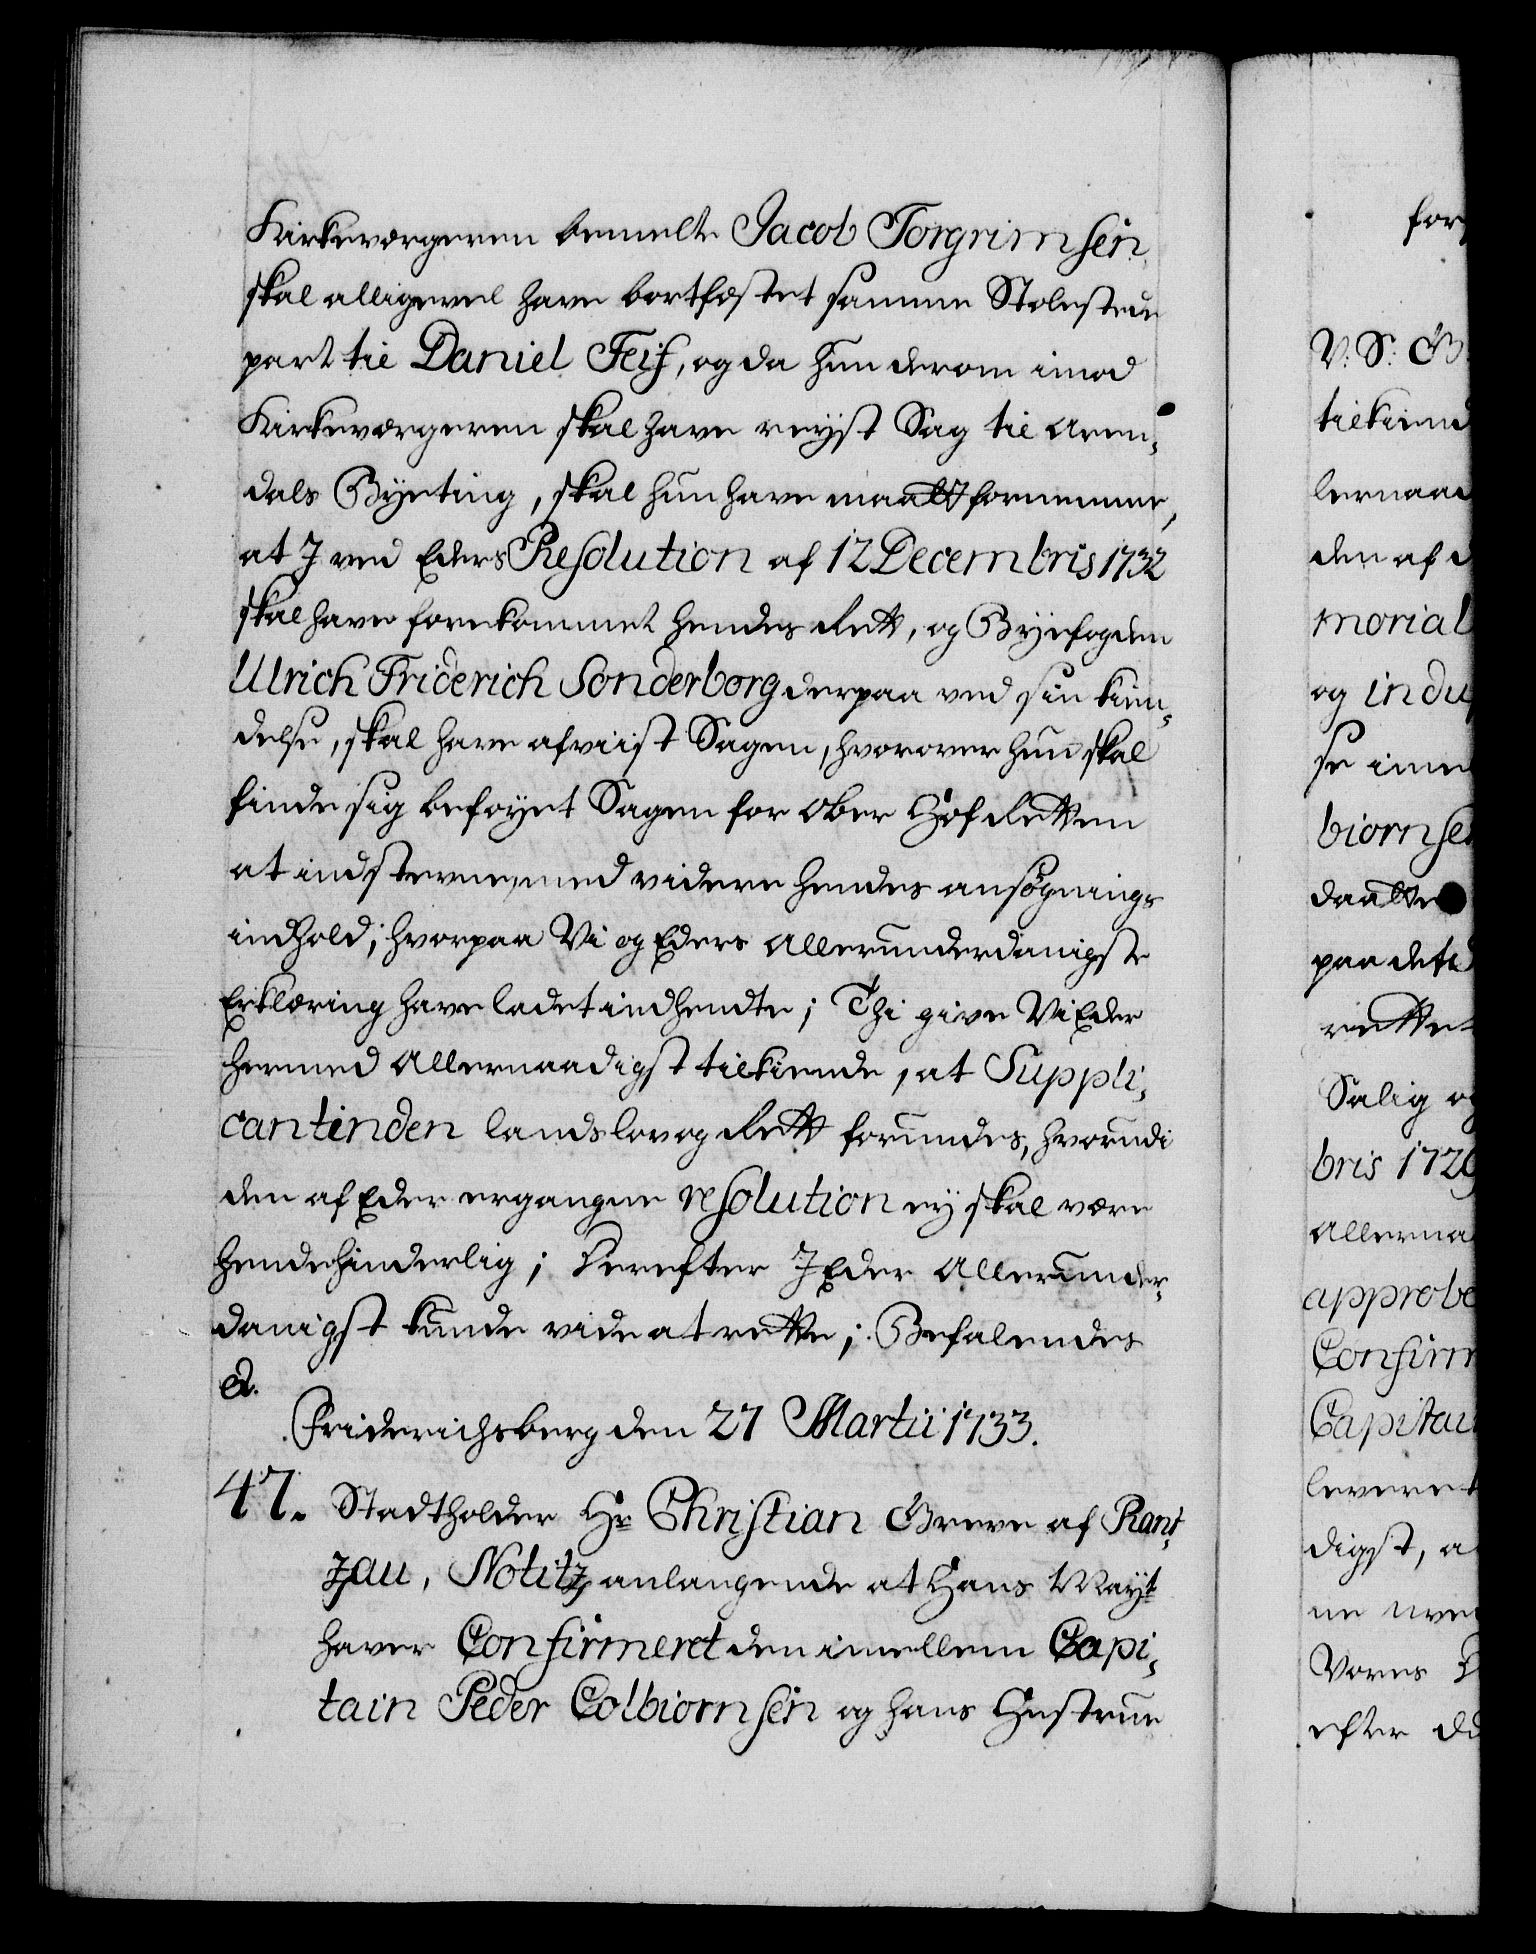 Kirkeværgeren bemelte Jacob Torgrimsen
skal alligevel have bortfæstet samme Stolestade
part til Daniel Feif, og da hun derom imod
Kirkeværgeren skal have reyst Sag til Aren-
dals Byeting, skal hun have maatt fornemme,
at I ved Eders Resolution af 12 Decembris 1732
skal have forekommet hendes Rett, og Byefogden
Ulrich Friderich Sonderborg derpaa ved sin kien-
delse, skal have afviist Sagen, hvorover hun skal
finde sig beføyet Sagen for Ober Hof Retten
at indstevne, med videre hendes ansøgnings
indhold; hvorpaa Vi og Eders allerunderdanigste
Erklæring have ladet indhendte; Thi give Vi Eder
hermed Allernaadigst tilkiende, at Suppli-
cantinden landslov og Rett forundes, hvorudi
den af Eder ergangne resolution ey skal være
hende hinderlig; Derefter I Eder Allerunder-
danigst kunde vide at rette; Befalendes
&.
Friderichsberg den 27 Martii 1733.
47. Stadtholder Hr Christian Greve af Rant-
zau, Notitz, anlangende at Hans Mayt
haver Confirmeret den imellem Capi-
tain Peder Colbiornsen og hans Hustrue
for
V: S: G
tilkiend
lernaad
den af d
morial
og indu
se imel
biornsen
daatter
paa det
rettet
Salig og
bris 1729
Allerna
approbe
Confirm
Capitai
leveret
digst, a
ne
Vores
efter